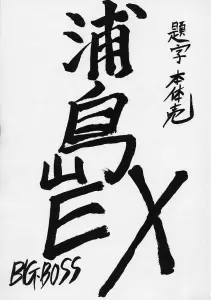 浦嶌EX
題字 本体壱
BIG-BOSS